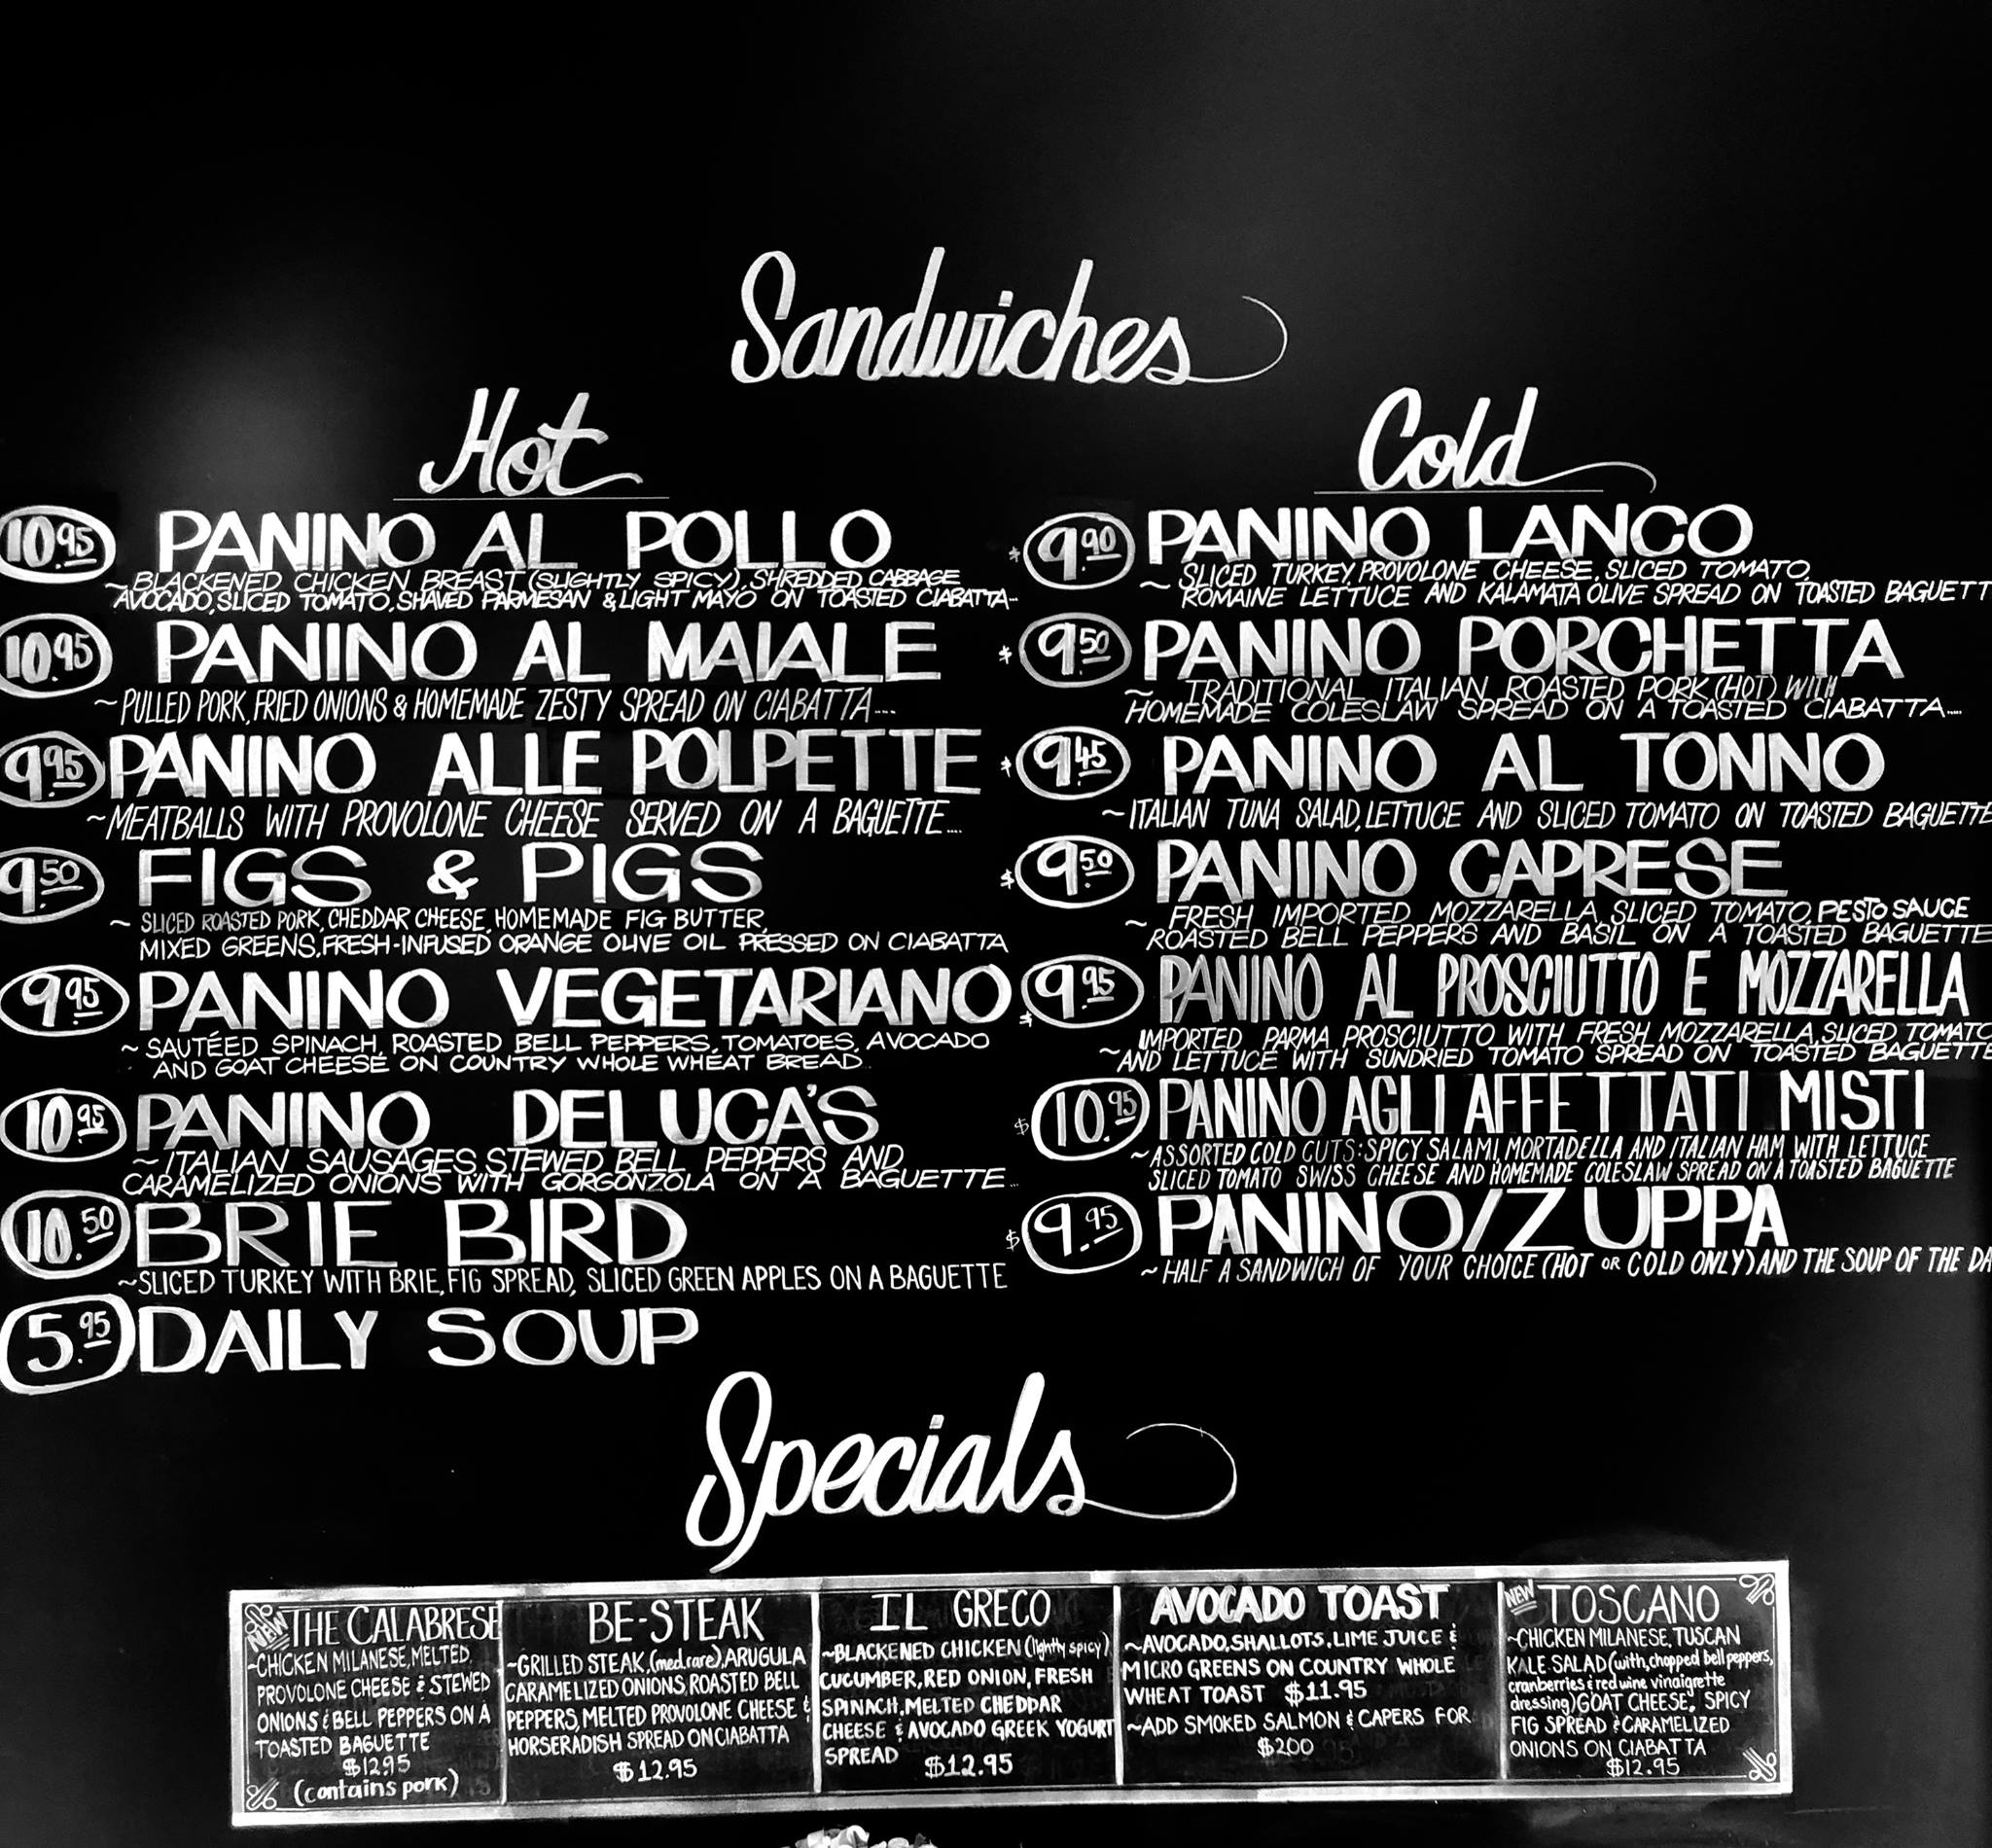 Sandwiches
Hot
10.95 PANINO AL POLLO
~BLACKENED CHICKEN BREAST (SLIGHTLY SPICY), SHREDDED CABBAGE
AVOCADO, SLICED TOMATO, SHAVED PARMESAN & LIGHT MAYO ON TOASTED CIABATTA~
10.95 PANINO AL MAIALE
~PULLED PORK, FRIED ONIONS & HOMEMADE ZESTY SPREAD ON CIABATTA....
9.95 PANINO ALLE POLPETTE
~MEATBALLS WITH PROVOLONE CHEESE SERVED ON A BAGUETTE....
9.50 FIGS & PIGS
~ SLICED ROASTED PORK, CHEDDAR CHEESE, HOMEMADE FIG BUTTER,
MIXED GREENS, FRESH-INFUSED ORANGE OLIVE OIL PRESSED ON CIABATTA
9.95 PANINO VEGETARIANO
~ SAUTÉED SPINACH, ROASTED BELL PEPPERS, TOMATOES, AVOCADO
AND GOAT CHEESE ON COUNTRY WHOLE WHEAT BREAD..
10.95 PANINO DELUCA'S
~ITALIAN SAUSAGES, STEWED BELL PEPPERS AND
CARAMELIZED ONIONS WITH GORGONZOLA ON A BAGUETTE...
10.50 BRIE BIRD
~SLICED TURKEY WITH BRIE, FIG SPREAD, SLICED GREEN APPLES ON A BAGUETTE
5.95 DAILY SOUP
Cold
$ 9.90 PANINO LANCO
~ SLICED TURKEY, PROVOLONE CHEESE, SLICED TOMATO,
ROMAINE LETTUCE AND KALAMATA OLIVE SPREAD ON TOASTED BAGUETT
$ 9.50 PANINO PORCHETTA
~ TRADITIONAL ITALIAN ROASTED PORK (HOT) WITH
HOMEMADE COLESLAW SPREAD ON A TOASTED CIABATTA....
$ 9.45 PANINO AL TONNO
~ITALIAN TUNA SALAD, LETTUCE AND SLICED TOMATO ON TOASTED BAGUETTE
$ 9.50 PANINO CAPRESE
~ FRESH IMPORTED MOZZARELLA, SLICED TOMATO, PESTO SAUCE
ROASTED BELL PEPPERS AND BASIL ON A TOASTED BAGUETTE
$ 9.95 PANINO AL PROSCIUTTO E MOZZARELLA
IMPORTED PARMA PROSCIUTTO WITH FRESH MOZZARELLA, SLICED TOMATO
~AND LETTUCE WITH SUNDRIED TOMATO SPREAD ON TOASTED BAGUETTE
$ 10.95 PANINO AGLI AFFETTATI MISTI
~ASSORTED COLD CUTS: SPICY SALAMI, MORTADELLA AND ITALIAN HAM WITH LETTUCE
SLICED TOMATO SWISS CHEESE AND HOMEMADE COLESLAW SPREAD ON A TOASTED BAGUETTE
$ 9.95 PANINO/ZUPPA
~ HALF A SANDWICH OF YOUR CHOICE (HOT OR COLD ONLY) AND THE SOUP OF THE DA
Specials
NEW THE CALABRESE
~CHICKEN MILANESE, MELTED
PROVOLONE CHEESE & STEWED
ONIONS & BELL PEPPERS ON A
TOASTED BAGUETTE
$12.95
(contains pork)
BE-STEAK
~GRILLED STEAK, (med.rare), ARUGULA
CARAMELIZED ONIONS, ROASTED BELL
PEPPERS, MELTED PROVOLONE CHEESE &
HORSERADISH SPREAD ON CIABATTA
$12.95
IL GRECO
~BLACKENED CHICKEN (lightly spicy)
CUCUMBER, RED ONION, FRESH
SPINACH, MELTED CHEDDAR
CHEESE & AVOCADO GREEK YOGURT
SPREAD $12.95
AVOCADO TOAST
~AVOCADO, SHALLOTS, LIME JUICE &
MICRO GREENS ON COUNTRY WHOLE
WHEAT TOAST $11.95
~ADD SMOKED SALMON & CAPERS FOR
$200
NEW TOSCANO
~CHICKEN MILANESE, TUSCAN
KALE SALAD (with, chopped bell peppers,
cranberries & red wine vinaigrette
dressing) GOAT CHEESE, SPICY
FIG SPREAD & CARAMELIZED
ONIONS ON CIABATTA
$12.95